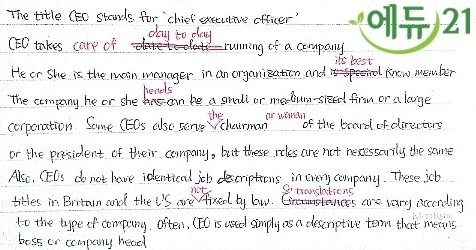 에듀21
The title CEO stands for 'chief executive officer'
day to day
CEO takes care of date to date running of a company
its best
He or She is the main manager in an organization and is special know member
heads
The company he or she has can be a small or medium-sized firm or a large
the or woman
corporation Some CEOs also serve chairman of the board of directors
or the president of their company, but these roles are not necessarily the same
Also, CEOs do not have identical job descriptions in every company. These job
not translations
titles in Britain and the US are fixed by law. Circumstances are vary according
to the type of company. often, CEO is used simply as a descriptive term that means
boss or company head